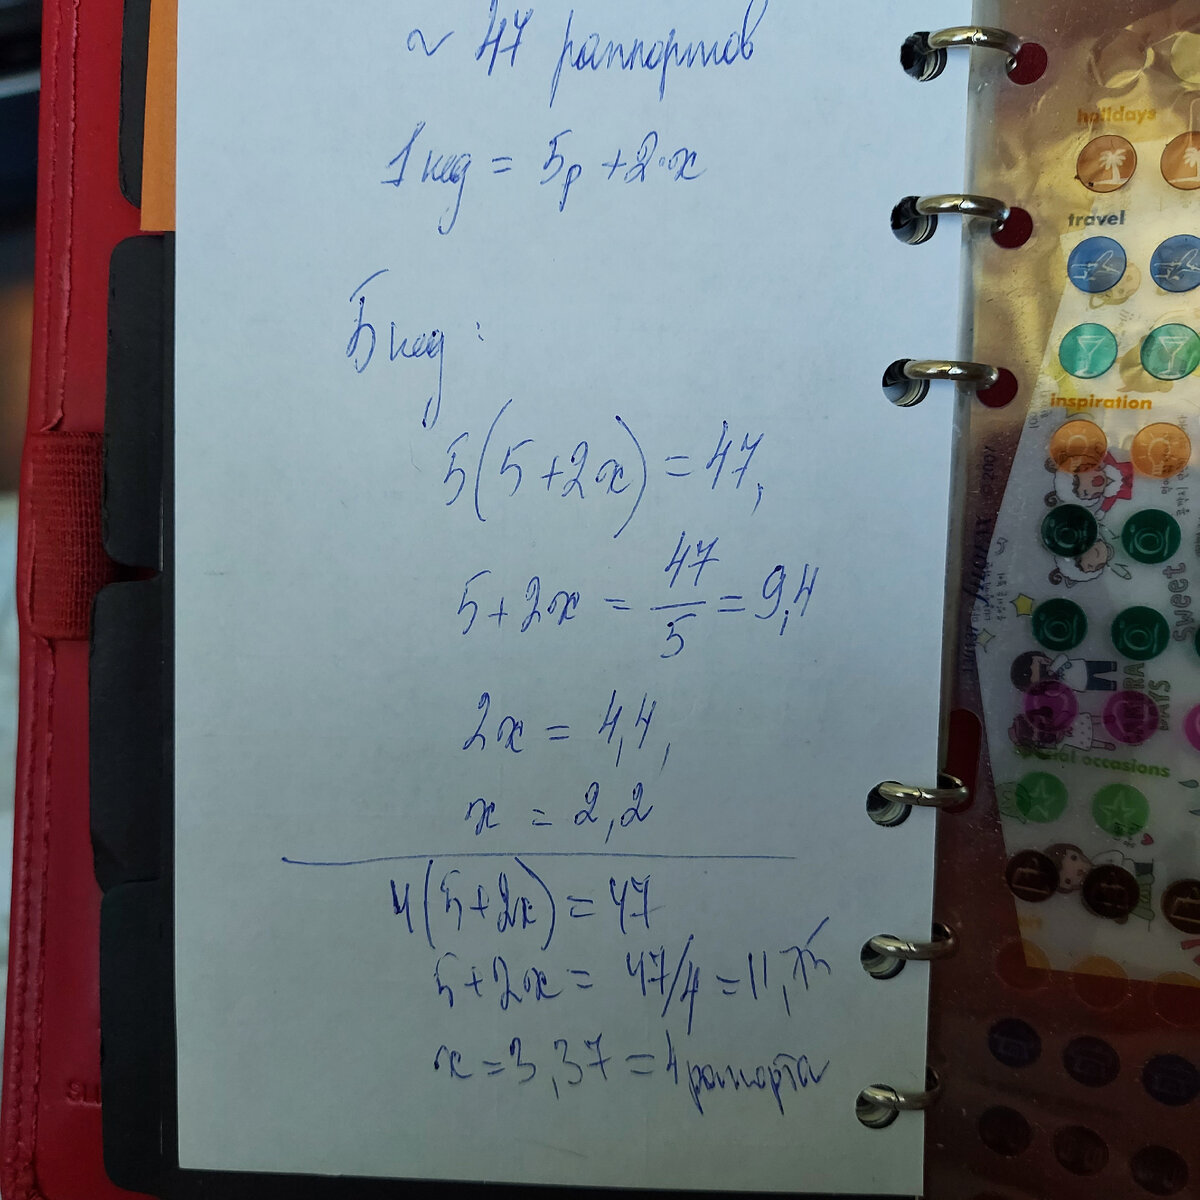 ~ 47 раппортов
1 кед = 5р + 2·x
5 кед :
5(5+2x) = 47,
5+2x = 47/5 = 9,4
2x = 4,4,
x = 2,2
4(5+2x) = 47
5+2x = 47/4 = 11,75
x = 3,37 = 4 рапорта
holidays
travel
inspiration
© 2007
Sweet
DAYS
special occasions